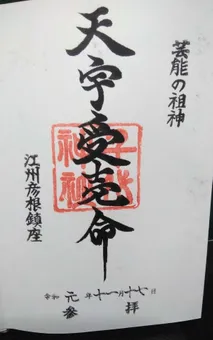 芸能の祖神
天宇受売命
千代神社
江州彦根鎮座
令和元年十一月十七日
参拝